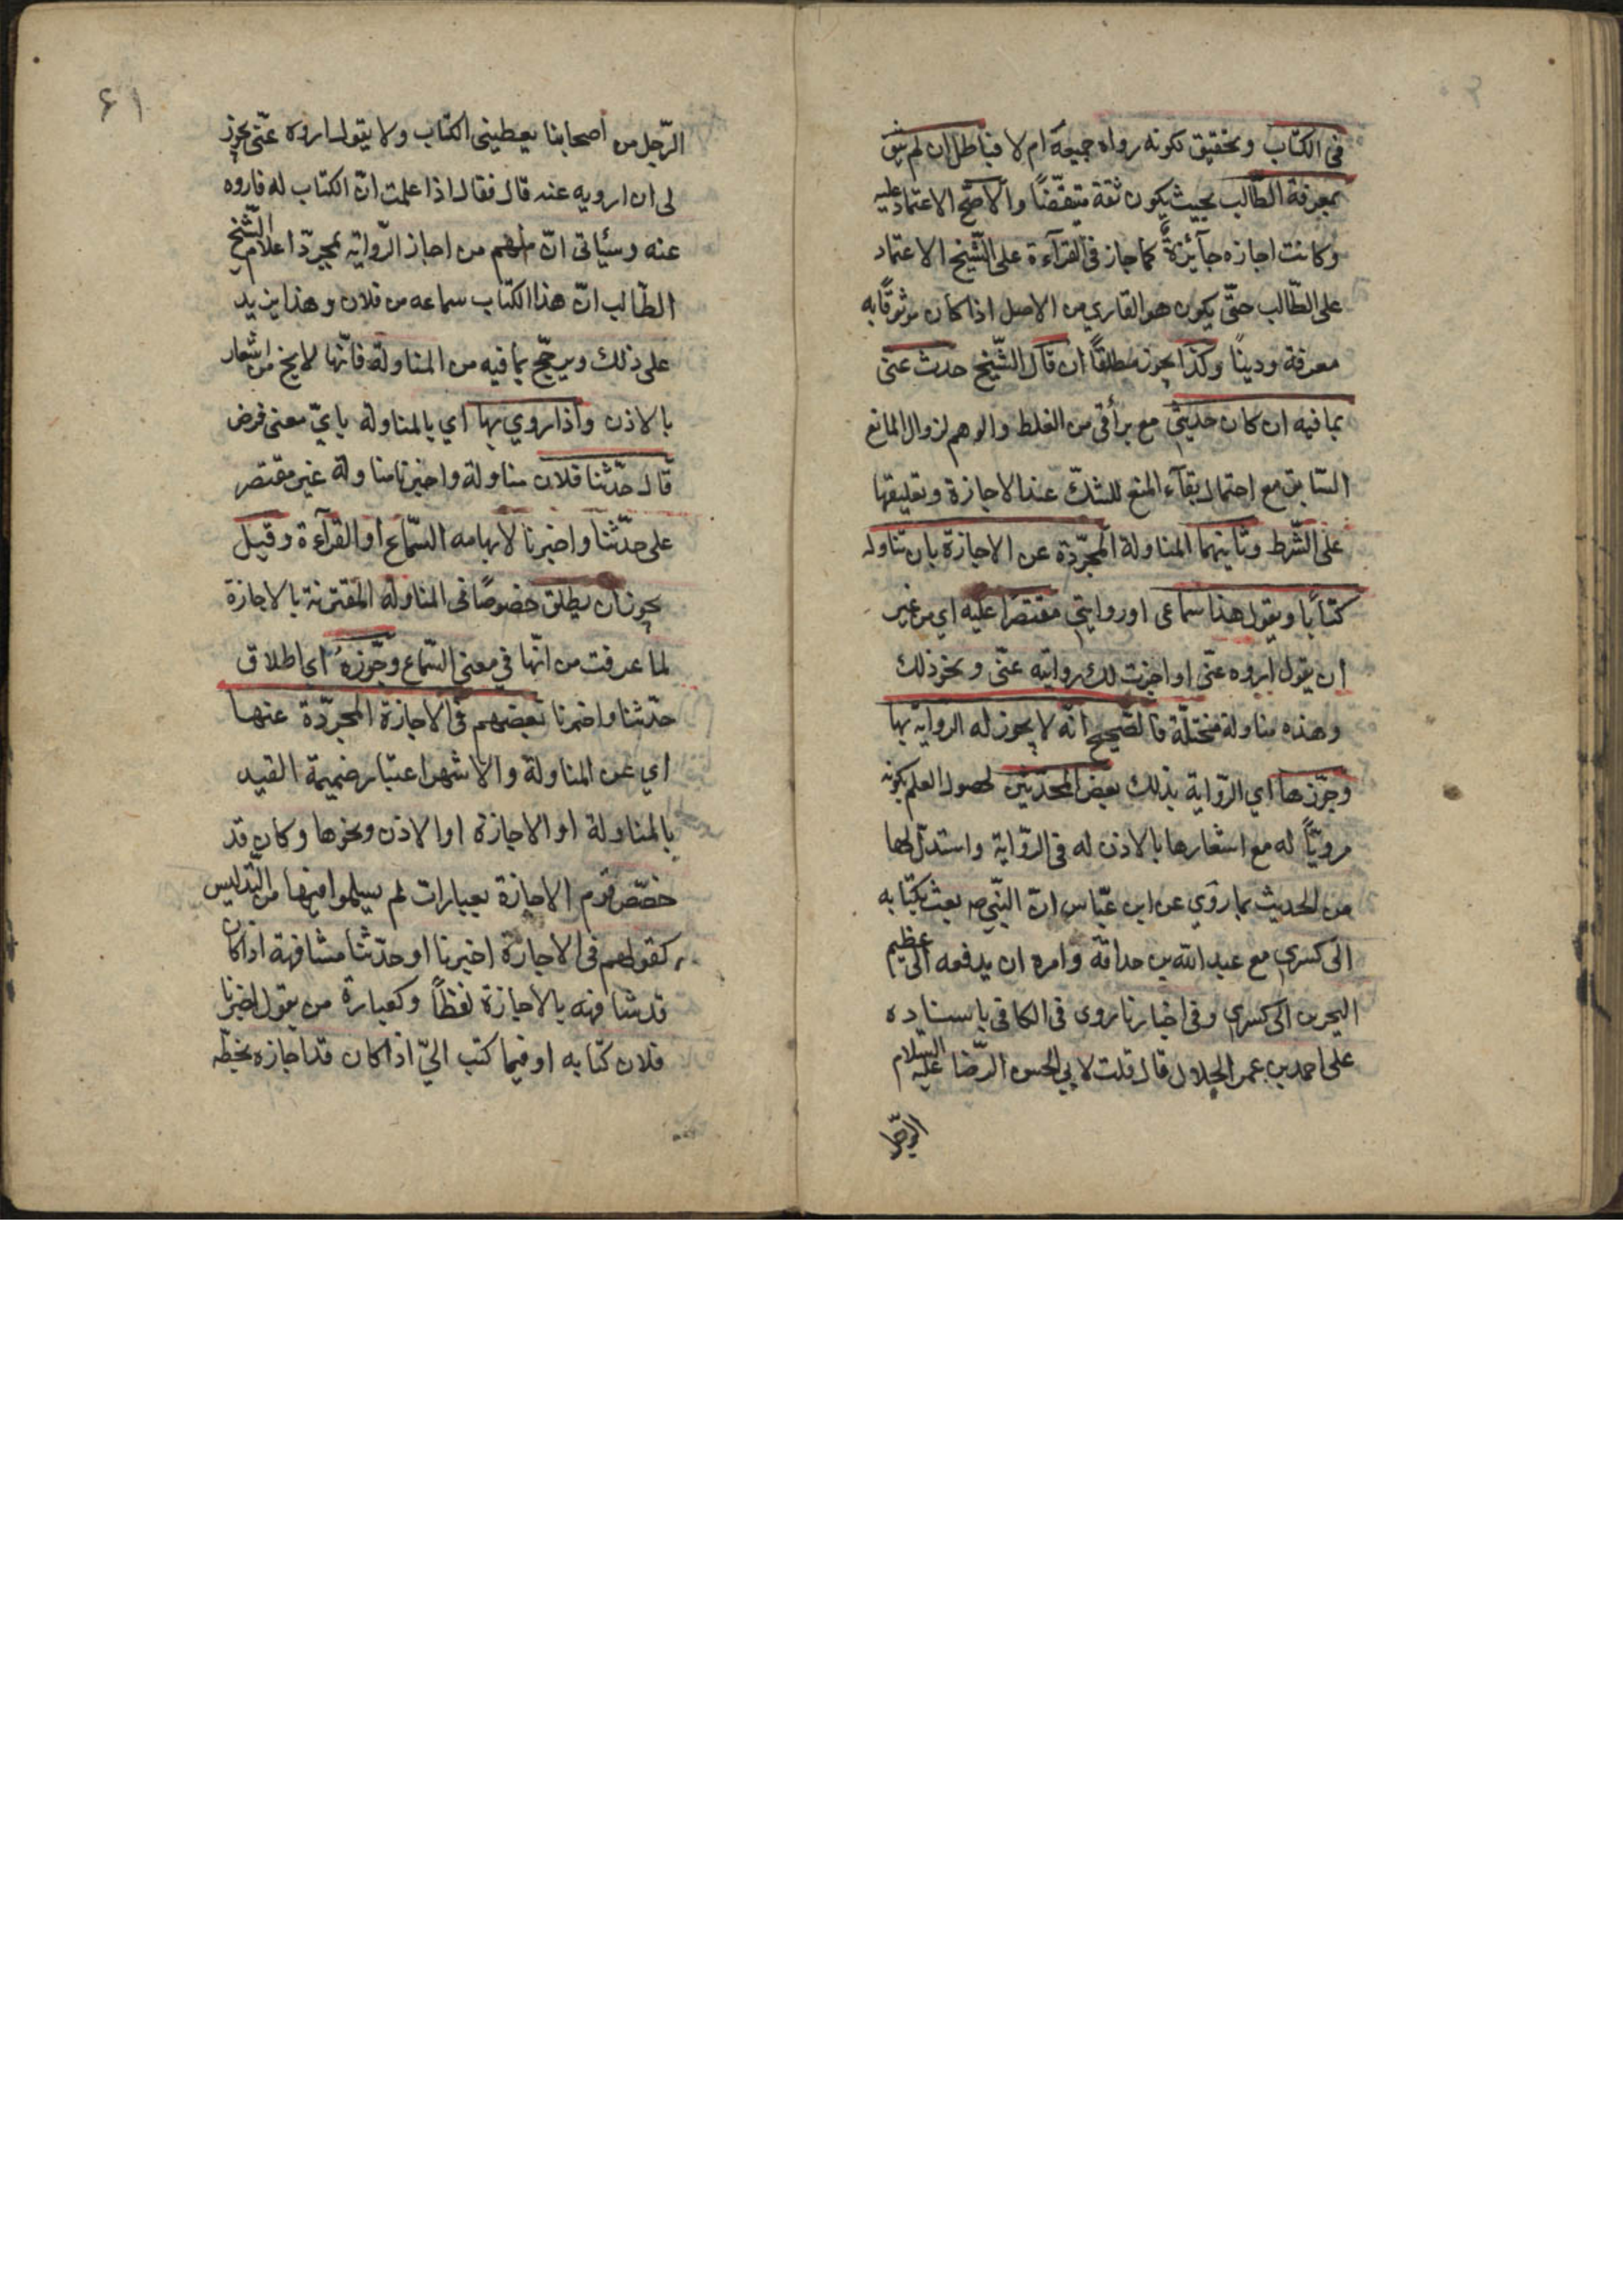 في الكتاب وتحقيق لكونه رواه جميعه ام لا فباطل ان لم يثق
بمعرفة الطّالب بحيث يكون ثقة متيقّضًا والاصّح الاعتماد عليه
وكانت اجازه جآئزةً كما جاز في القرآءة على الشّيخ الاعتماد
على الطّالب حتّى يكون هو القاري من الاصل اذا كان موثوقًا به
معرفة ودينًا وكذا يجوز مطلقًا ان قال الشّيخ حدث عنّى
بما فيه ان كان حديثى مع برأتى من الغلط والوهم لزوال المانع
السّابق مع احتمال بقآء المنع للشكّ عند الاجازة وتعليقها
على الشّرط وثانيهما المناولة المجرّدة عن الاجازة بان تناوله
كتابًا ويقول هذا سماعى او روايتي مقتصرًا عليه اي من غير
ان يقول اروه عنّى او اجزت لك روايته عنّى ونحو ذلك
وهذه مناولة مختلّة فالصّحيح انّه لا يجوز له الرواية بها
وجوّزها اي الرّواية بذلك بعض المحدّثين لحصول العلم بكونه
مرويًّا له مع اشعارها بالاذن له في الرّواية واستدلّ لها
من الحديث بما روي عن ابن عبّاس انّ النّبي ص بعث بكتابه
الى كسرى مع عبد الله بن حذافة وامره ان يدفعه الى عظيم
البحرين الى كسرى وفي اخبارنا روى في الكافي باسناده
على احمد بن عمر الحلال قال قلت لابي الحسن الرّضا عليه السلام
الرجل
٦١
الرّجل من اصحابنا يعطينى الكتاب ولا يقول اروه عنّى يجوز
لى ان ارويه عنه قال فقال اذا علمت انّ الكتاب له فاروه
عنه وسيأتى انّ منهم من اجاز الرّواية بمجرّد اعلام الشّيخ
الطّالب انّ هذا الكتاب سماعه من فلان وهذا يزيد
على ذلك ويرجّح بما فيه من المناولة فانّها لا يخ من اشعار
بالاذن واذا روي بها اي بالمناولة بايّ معنى فرض
قال حدّثنا فلان مناولة واخبرنا مناولة غير مقتصر
على حدّثنا واخبرنا لايهامه السّماع او القرآءة وقيل
يجوز ان يطلق خصوصًا في المناولة المقترنة بالاجازة
لما عرفت من انّها في معنى السّماع وجّوزه اي اطلاق
حدّثنا واخبرنا بعضهم في الاجازة المجرّدة عنها
اي عن المناولة والاشهر اعتبار ضميمة القيد
بالمناولة او الاجازة او الاذن ونحوها وكان قد
خصّص قوم الاجازة بعبارات لم يسلموا فيها من التّدليس
كقولهم في الاجازة اخبرنا او حدّثنا مشافهة اذا كان
قد شافهه بالاجازة لفظًا وكعبارة من يقول اخبرنا
فلان كتابه او فيما كتب اليّ اذا كان قد اجازه بخطّه